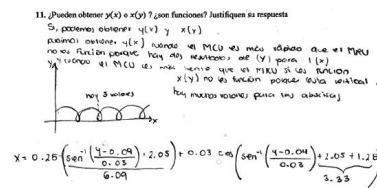 11. ¿Pueden obtener y(x) o x(y) ? ¿son funciones? Justifiquen su respuesta
Si, podemos obtener y(x) y x(y)
podemos obtener y(x) cuando el MCU es más rápido que el MRU
no es función porque hay dos resultados de (y) para 1 (x)
y cuando el MCU es más lento que el MRU si es función
x(y) no es función porque corta vertical
hay muchos valores para las abscisas
y
hay 3 valores
x
x = 0.25 (sen⁻¹ ((y-0.09)/0.03) + 2.05) + 0.03 cos (sen⁻¹ ((y-0.04)/0.03) + 2.05 + 1.28
6.09
3.33